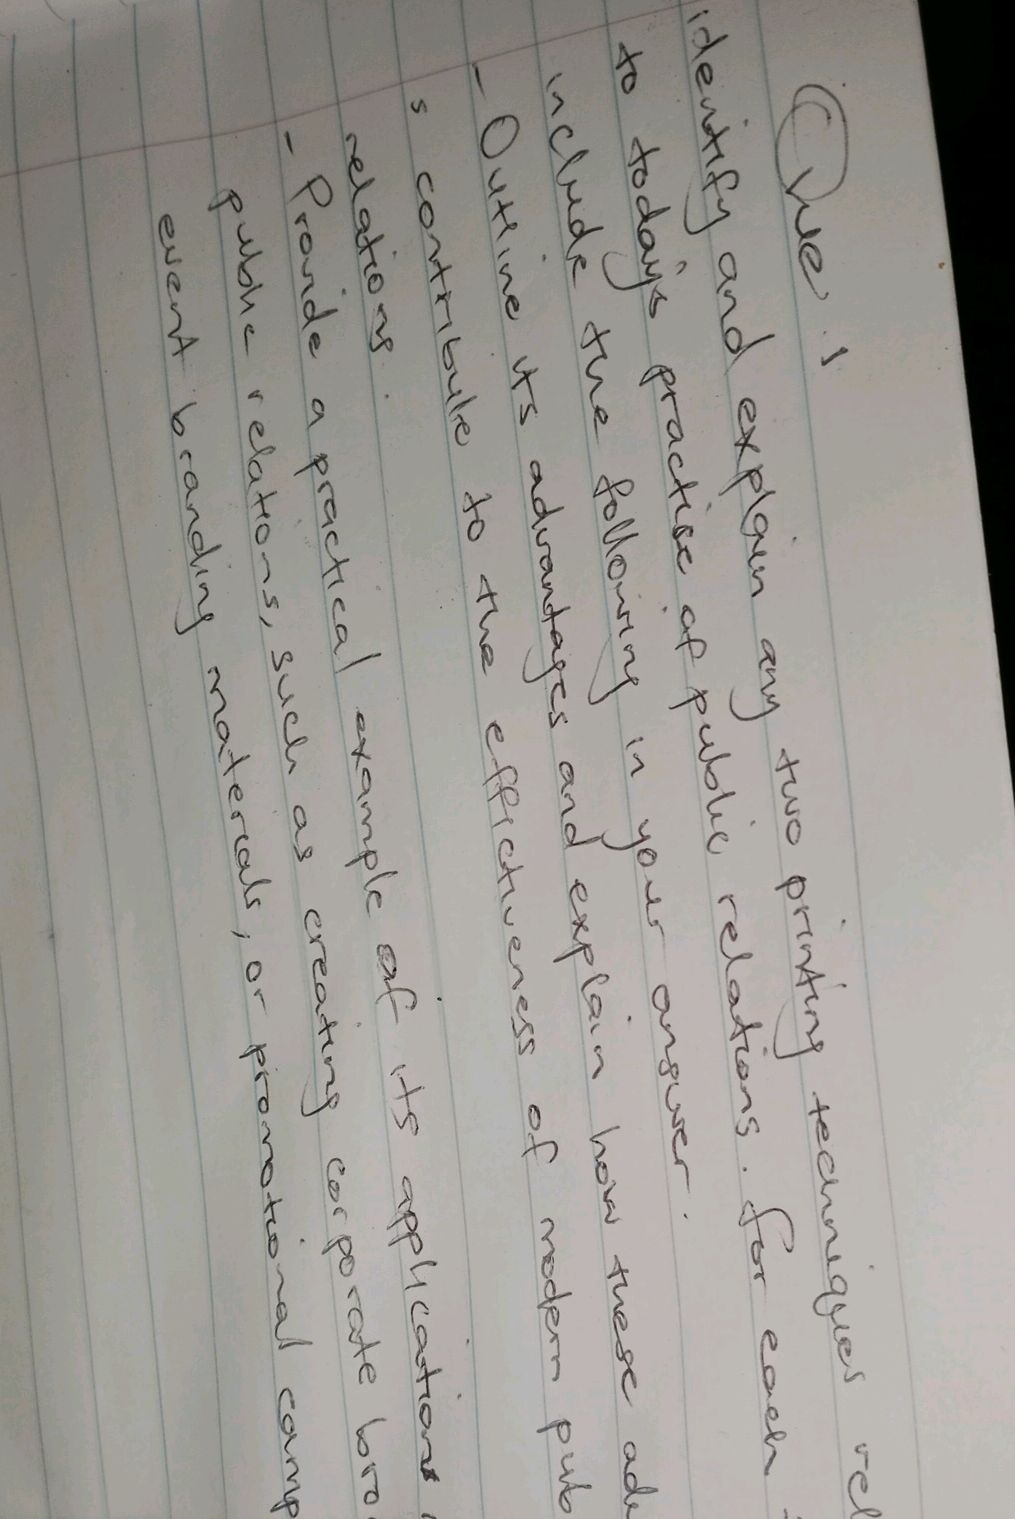 Que 1
identify and explain any two printing techniques rel
to today's practise of public relations. for each
include the following in your answer.
- Outline its advantages and explain how these adv
s contribute to the effectiveness of modern pub
relations.
- Provide a practical example of its applications
public relations, such as creating corporate bro
event branding materials, or promotional camp